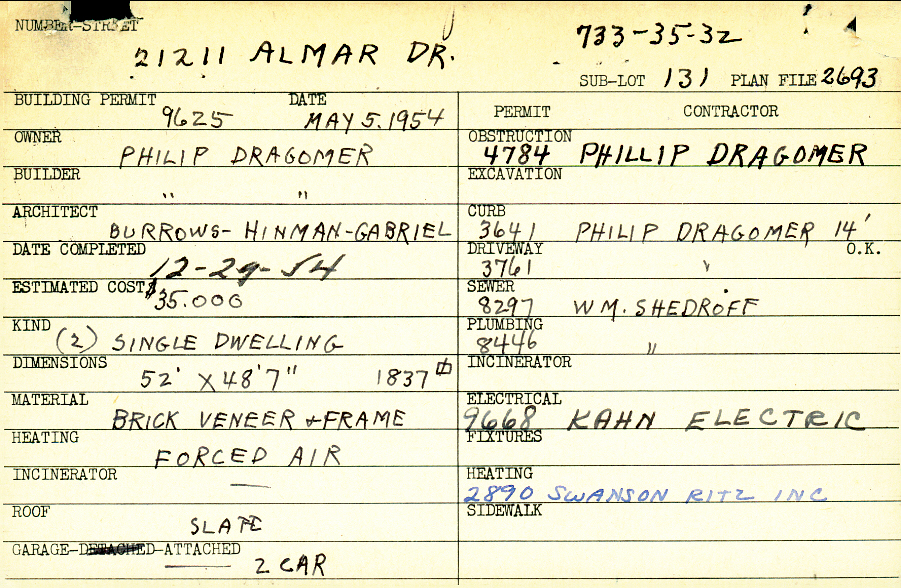 NUMBER-STREET
21211 ALMAR DR.
733-35-32
SUB-LOT 131 PLAN FILE 2693
BUILDING PERMIT DATE
9625 MAY 5. 1954
OWNER
PHILIP DRAGOMER
BUILDER
" "
ARCHITECT
BURROWS-HINMAN-GABRIEL
DATE COMPLETED
12-29-54
ESTIMATED COST $35.000
KIND
(2) SINGLE DWELLING
DIMENSIONS
52' X 48'7" 1837
MATERIAL
BRICK VENEER + FRAME
HEATING
FORCED AIR
INCINERATOR
—
ROOF
SLATE
GARAGE-DETACHED-ATTACHED
2 CAR
PERMIT CONTRACTOR
OBSTRUCTION
4784 PHILLIP DRAGOMER
EXCAVATION
CURB
3641 PHILIP DRAGOMER 14'
DRIVEWAY O.K.
3761 "
SEWER
8297 WM. SHEDROFF
PLUMBING
8446 "
INCINERATOR
ELECTRICAL
9668 KAHN ELECTRIC
FIXTURES
HEATING
2890 SWANSON RITZ INC
SIDEWALK